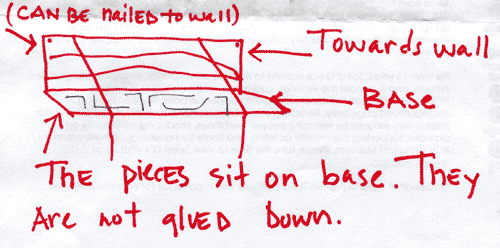 (CAN BE nailed to wall)
Towards wall
BASE
THE pieces sit on base. They
Are not glued Down.